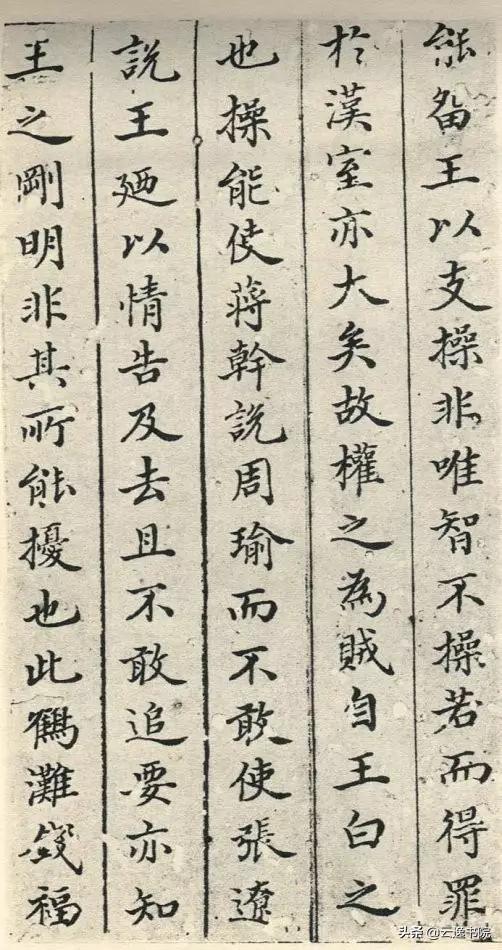 能留王以支操非唯智不操若而得罪
於漢室亦大矣故權之為賊自王白之
也操能使蔣幹說周瑜而不敢使張遼
說王廼以情告及去且不敢追要亦知
王之剛明非其所能擾也此鶴灘錢福
头条 @云逸书院